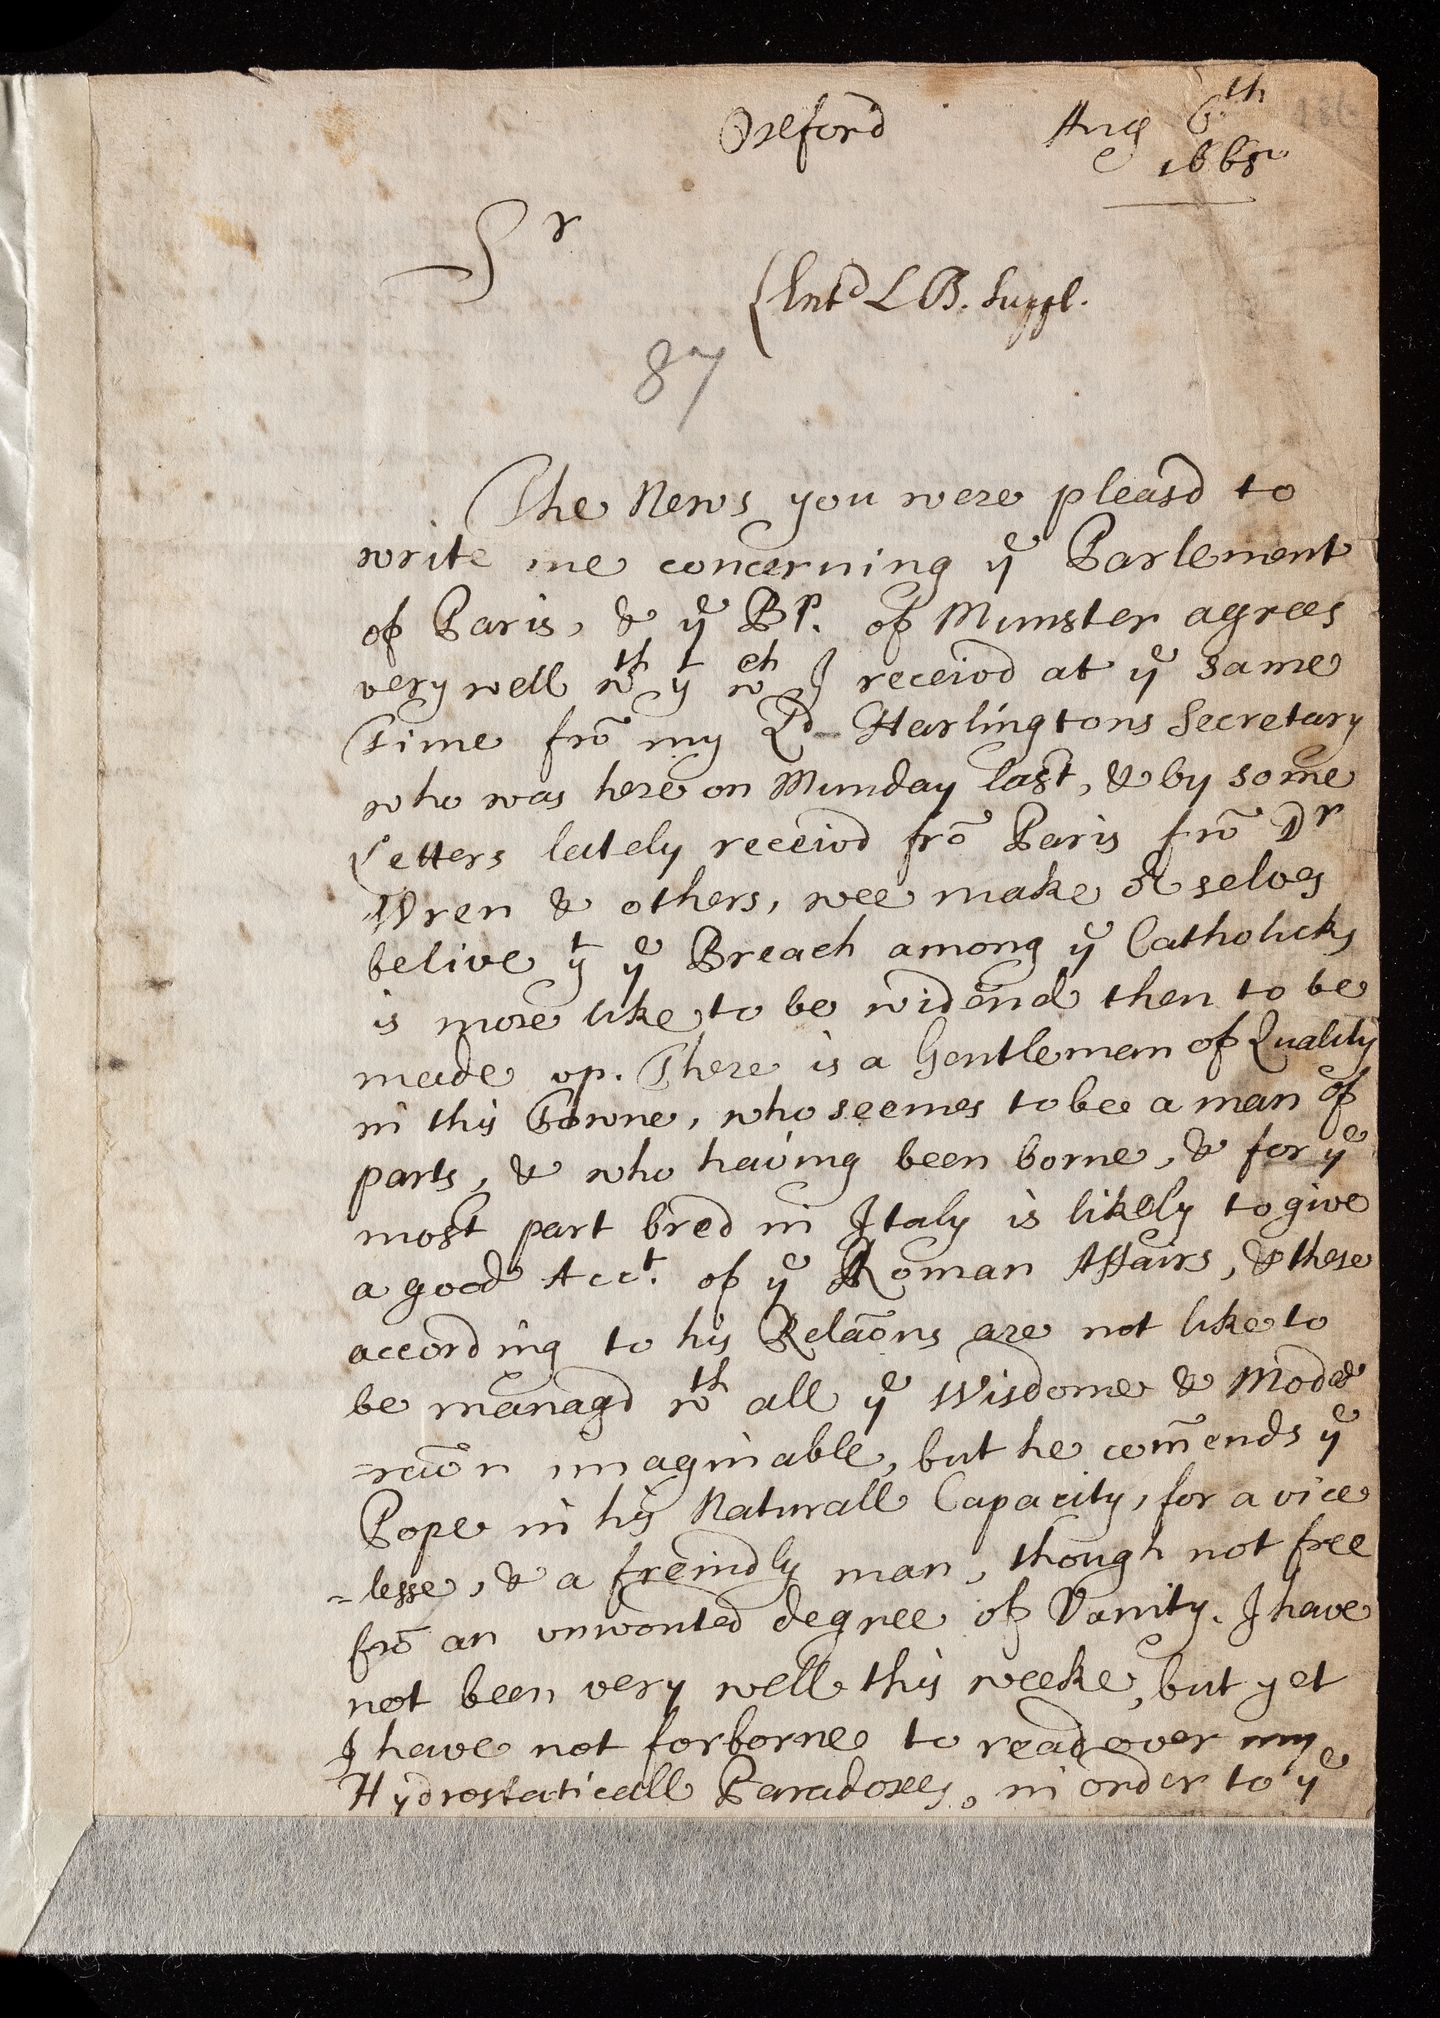 Oxford Aug 6th
1665
186
Sr
(Entd L B. Suppl.
87
The News you were pleasd to
write me concerning ye Parlement
of Paris, & ye Bp. of Munster agrees
very well wth yt wch I receivd at ye same
Time frō my Ld Harlingtons Secretary
who was here on Munday last, & by some
Letters lately receivd frō Paris frō Dr
Wren & others, wee make or selves
belive yt ye Breach among ye Catholicks
is more like to be widend then to be
made vp. There is a Gentleman of Quality
in this Towne, who seemes to bee a man of
parts, & who having been borne, & for ye
most part bred in Italy is likely to give
a good Acct. of ye Roman Affairs, & these
according to his Relaōns are not like to
be managd wth all ye Wisdome & Mode
=raōn imaginable, but he com̄ends ye
Pope in his Naturall Capacity, for a vice
=lesse, & a freindly man, though not free
frō an vnwonted degree of Vanity. I have
not been very well this weeke, but yet
I have not forborne to read over my
Hydrostaticall Paradoxes, in order to ye